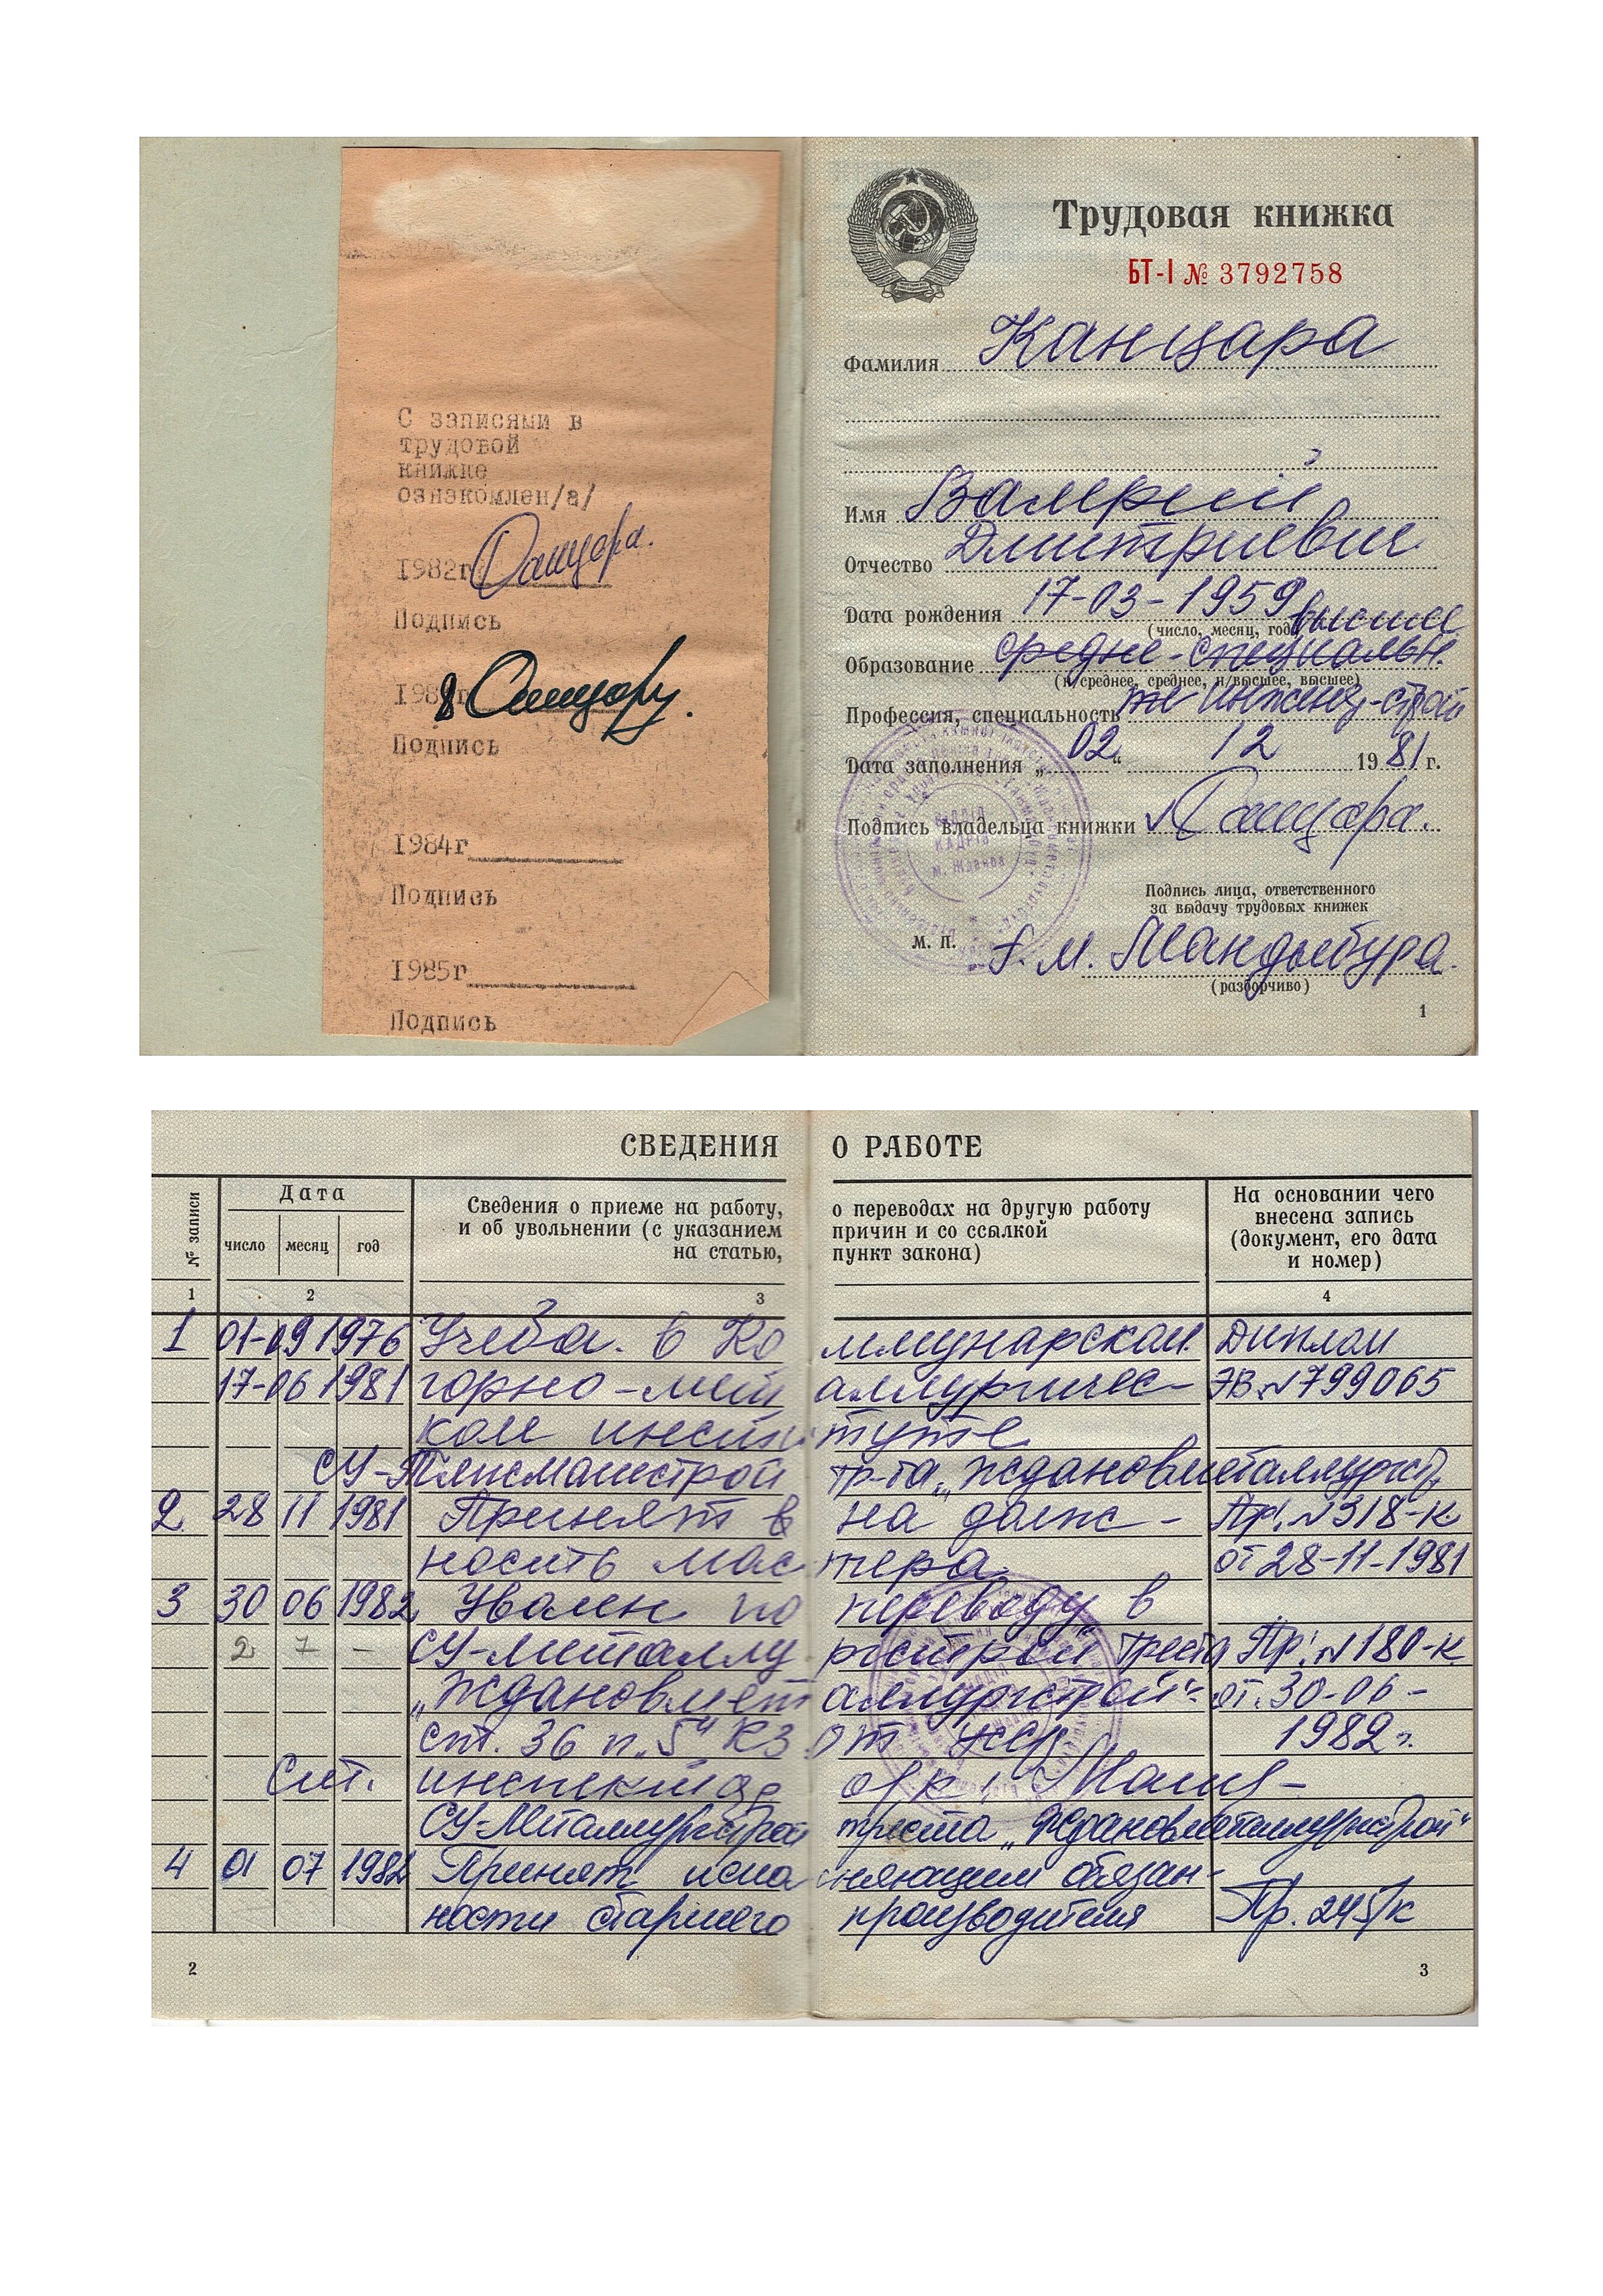 С записями в
трудовой
книжке
ознакомлен/а/
1982г
Подпись
198 г
Подпись
1984г
Подпись
1985г
Подпись
Трудовая книжка
БТ-I № 3792758
Фамилия Канцара
Имя Валерий
Отчество Дмитриевич
Дата рождения 17-03-1959
(число, месяц, год) высшее
Образование средне-специальн.
(н/среднее, среднее, н/высшее, высшее)
Профессия, специальность инженер-строй
Дата заполнения „02“ 12 1981 г.
Подпись владельца книжки Канцара.
Подпись лица, ответственного
за выдачу трудовых книжек
м. п. Мандыбура.
(разборчиво)
ВІДДІЛ
КАДРІВ
м. Жданов
1
СВЕДЕНИЯ О РАБОТЕ
№ записи
Дата
число месяц год
Сведения о приеме на работу, о переводах на другую работу
и об увольнении (с указанием причин и со ссылкой
на статью, пункт закона)
На основании чего
внесена запись
(документ, его дата
и номер)
1 2 3 4
1 01-09 1976 Учеба в Коммунарском Диплом
17-06 1981 горно-металлургичес- ЗВ №799065
ком институте
СУ-Тяжмашстрой тр-та „Ждановметаллургстр.
2 28 11 1981 Принят в на долж- Пр. №318-к
ность мастера от 28-11-1981
3 30 06 1982 Уволен по переводу в
2 7 - СУ-металлургстрой треста Пр. №180-к
„Ждановметаллургстрой“ от 30-06-
ст. 36 п. 5 КЗоТ УССР 1982г.
Ст. инспектор о/к
СУ-Металлургстрой треста „Ждановметаллургстрой“
4 01 07 1982 Принят исполняющим обязан-
ности старшего производителя Пр. 245/к
2
3